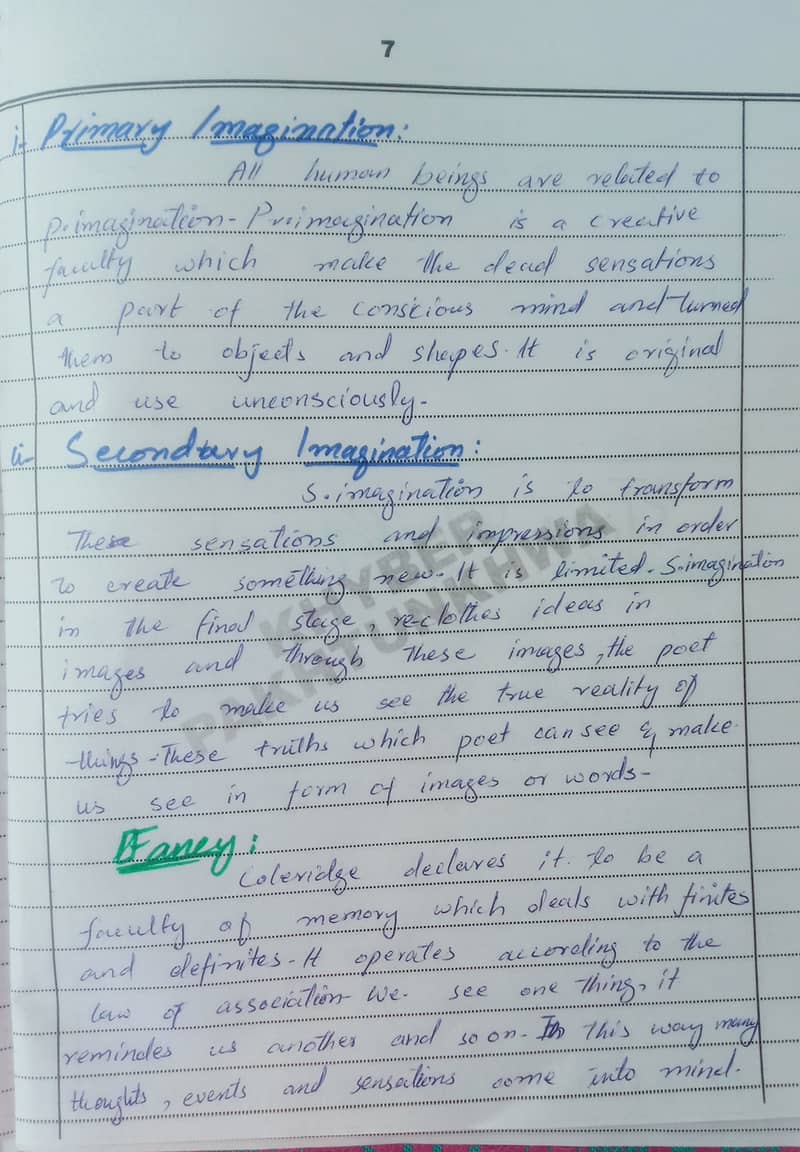 7
i- Primary Imagination:
All human beings are related to
P.imagination - Pr.imagination is a creative
faculty which make the dead sensations
a part of the conscious mind and turned
them to objects and shapes. It is original
and use unconsciously-
ii- Secondary Imagination:
S.imagination is to transform
These sensations and impressions in order
to create something new. It is limited. S.imagination
in the final stage, re-clothes ideas in
images and through these images, the poet
tries to make us see the true reality of
things - These truths which poet can see & make
us see in form of images or words-
Fancy:
Coleridge declares it to be a
faculty of memory which deals with finites
and definites - It operates according to the
law of association - We see one thing, it
remindes us another and so on - In this way many
thoughts, events and sensations come into mind.
KHYBER
PAKHTUNKHWA